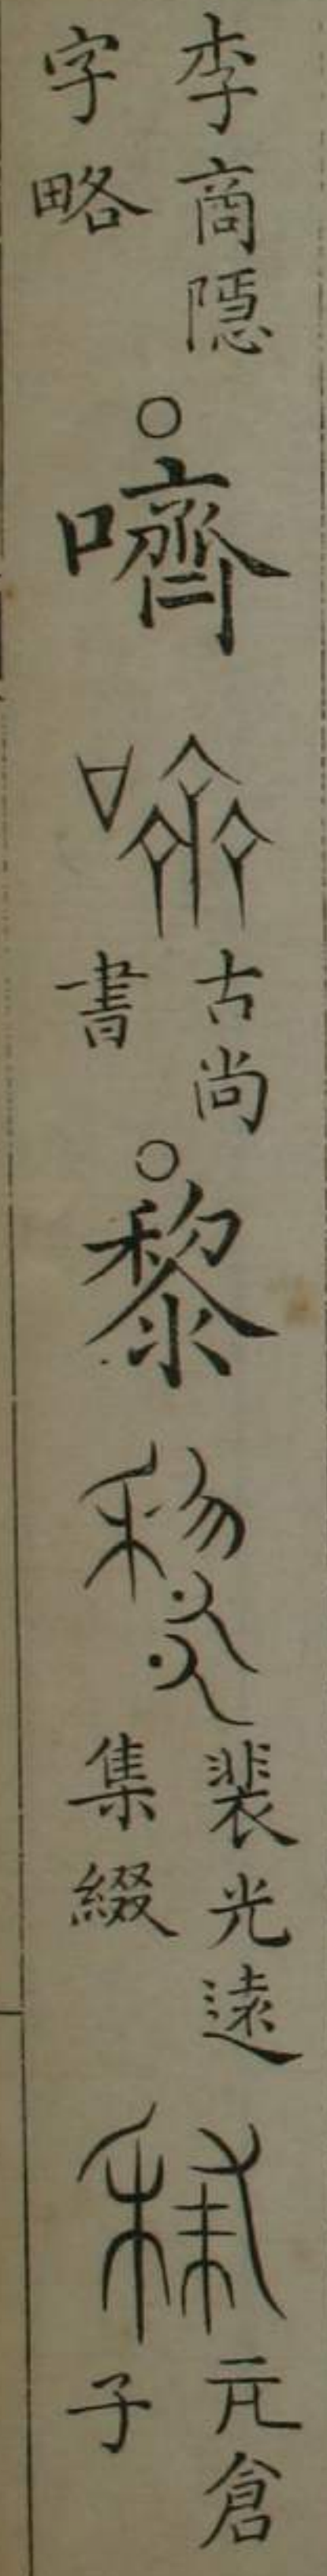 李商隱
字略
○嚌
古尚
書
○黎
裴光遠
集綴
亢倉
子